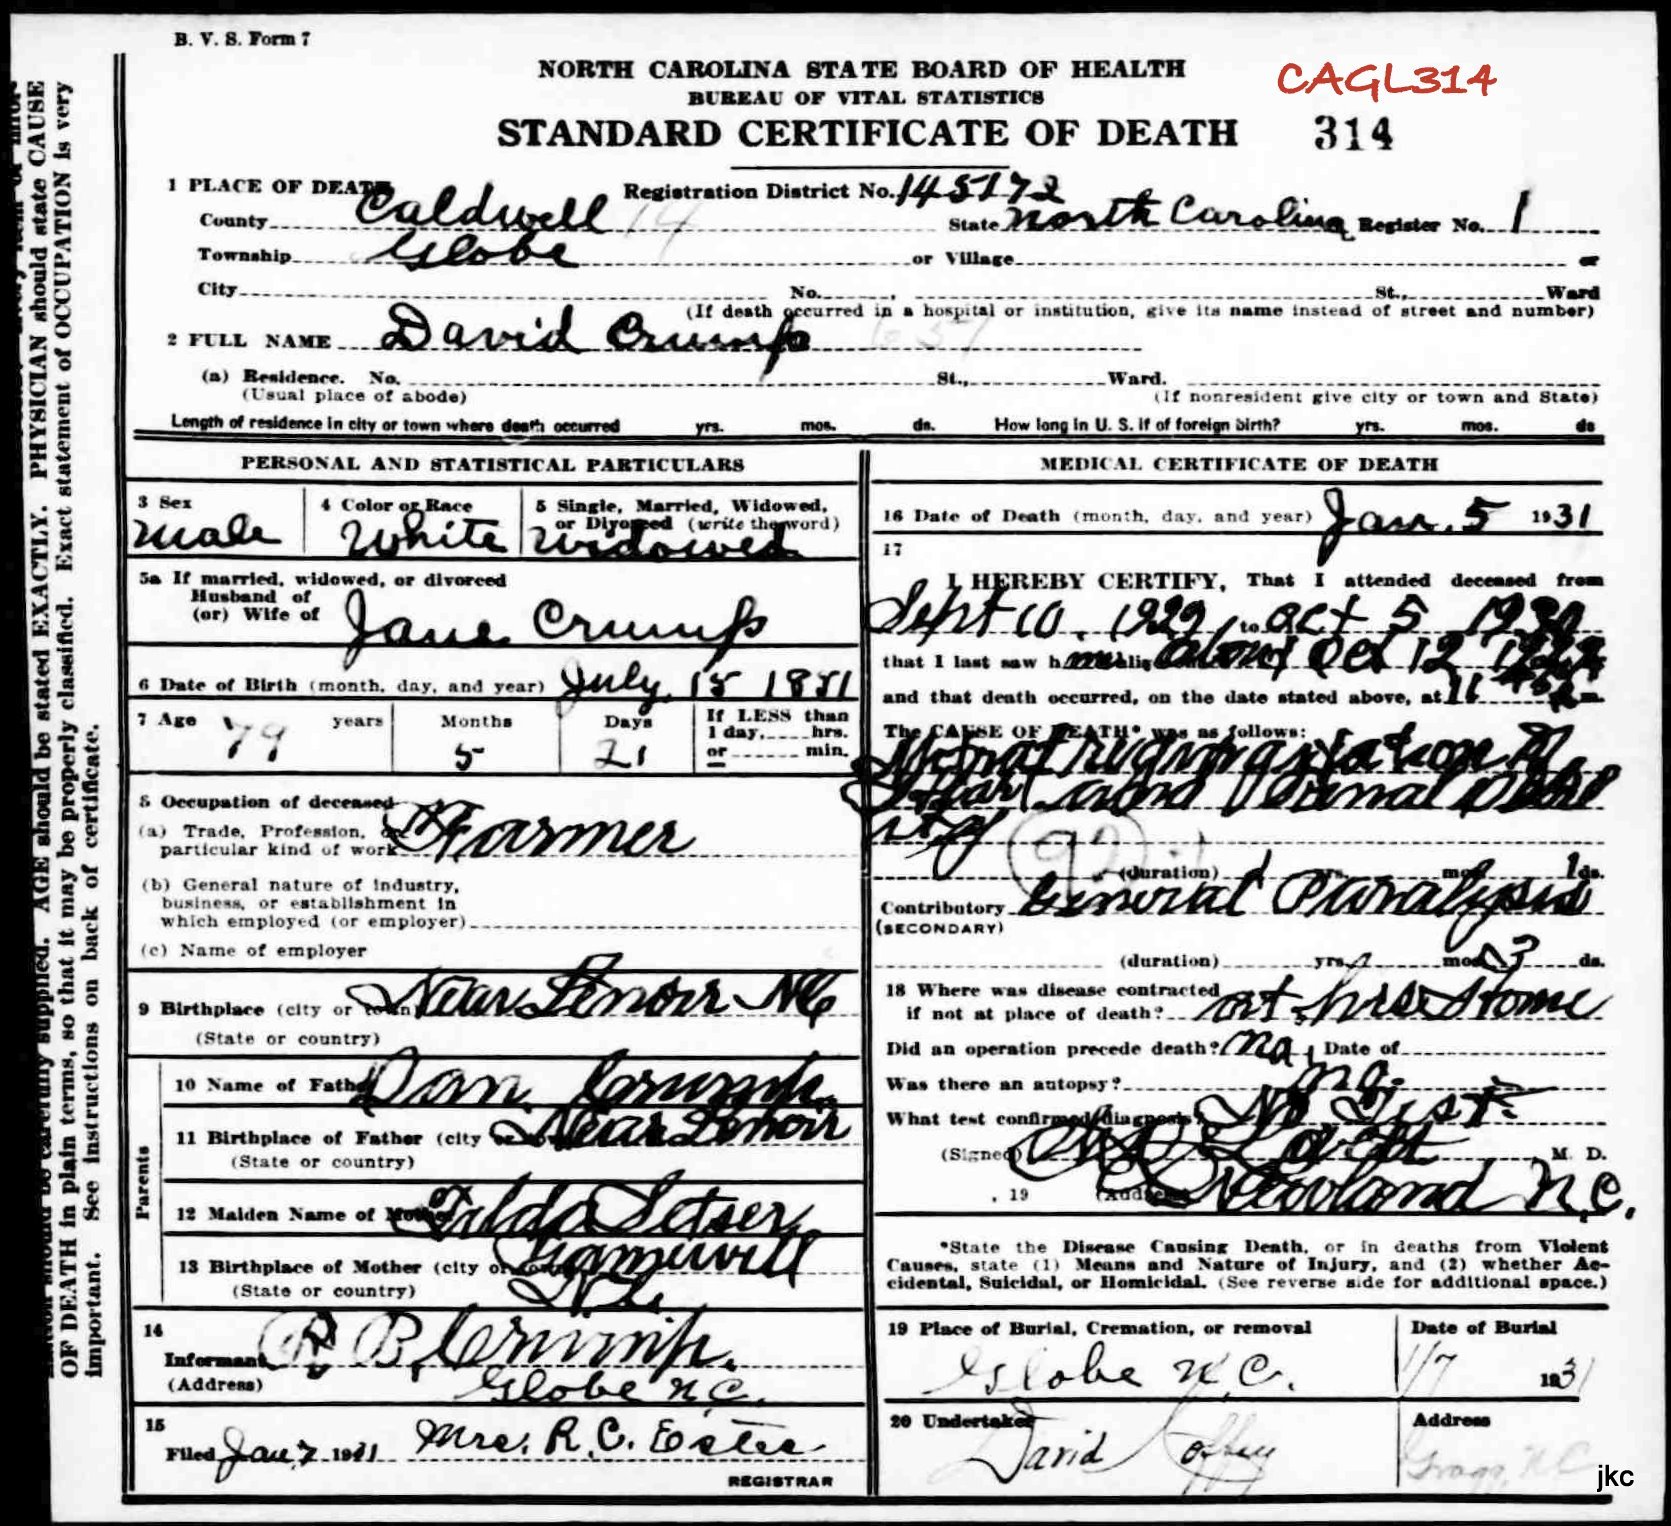 B. V. S. Form 7
NORTH CAROLINA STATE BOARD OF HEALTH
CAGL314
BUREAU OF VITAL STATISTICS
STANDARD CERTIFICATE OF DEATH 314
1 PLACE OF DEATH Registration District No. 145172
County Caldwell 14 State North Carolina Register No. 1
Township Globe or Village or
City No. , St., Ward
(If death occurred in a hospital or institution, give its name instead of street and number)
2 FULL NAME David Crump
(a) Residence. No. St., Ward.
(Usual place of abode) (If nonresident give city or town and State)
Length of residence in city or town where death occurred yrs. mos. ds. How long in U. S. if of foreign birth? yrs. mos. ds
PERSONAL AND STATISTICAL PARTICULARS
3 Sex
Male
4 Color or Race
White
5 Single, Married, Widowed,
or Divorced (write the word)
Widowed
5a If married, widowed, or divorced
Husband of
(or) Wife of Jane Crump
6 Date of Birth (month, day, and year) July 15 1851
7 Age 79 years
Months
5
Days
21
If LESS than
1 day, hrs.
or min.
8 Occupation of deceased
(a) Trade, Profession, or
particular kind of work Farmer
(b) General nature of industry,
business, or establishment in
which employed (or employer)
(c) Name of employer
9 Birthplace (city or town) Near Lenoir NC
(State or country)
Parents
10 Name of Father Dan Crump.
11 Birthplace of Father (city or town) Near Lenoir
(State or country)
12 Maiden Name of Mother Tilda Setser
13 Birthplace of Mother (city or town) Gamewell
(State or country) N.C.
14
Informant R B. Crump.
(Address) Globe N.C.
15
Filed Jan 7 1931 Mrs. R. C. Estes
REGISTRAR
MEDICAL CERTIFICATE OF DEATH
16 Date of Death (month, day, and year) Jan. 5 1931
17
I HEREBY CERTIFY, That I attended deceased from
Sept 10, 1929, to Oct 5 1930
that I last saw h alive about Oct 12
and that death occurred, on the date stated above, at 11 m.
The CAUSE OF DEATH* was as follows:
Heart and
ity
92
(duration) yrs. mos. 1 ds.
Contributory General Paralysis
(SECONDARY)
(duration) yrs. mos. 3 ds.
18 Where was disease contracted
if not at place of death? at his Home
Did an operation precede death? No, Date of
Was there an autopsy? no.
What test confirmed diagnosis? No Test
(Signed) M. D.
, 19 (Address) Newland N.C.
*State the Disease Causing Death, or in deaths from Violent
Causes, state (1) Means and Nature of Injury, and (2) whether Ac-
cidental, Suicidal, or Homicidal. (See reverse side for additional space.)
19 Place of Burial, Cremation, or removal
Globe N.C.
Date of Burial
1/7 1931
20 Undertaker
David Coffey
Address
Gragg, N C
jkc
should be carefully supplied. AGE should be stated EXACTLY. PHYSICIAN should state CAUSE
OF DEATH in plain terms, so that it may be properly classified. Exact statement of OCCUPATION is very
important. See instructions on back of certificate.